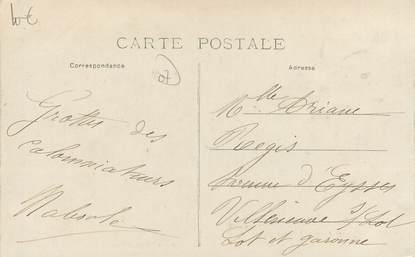 Lot
CARTE POSTALE
Correspondance
Adresse
Grottes des
calomniateurs
Melle Ariane
Regis
Avenue d'Eysses
Villeneuve s/Lot
Lot et garonne